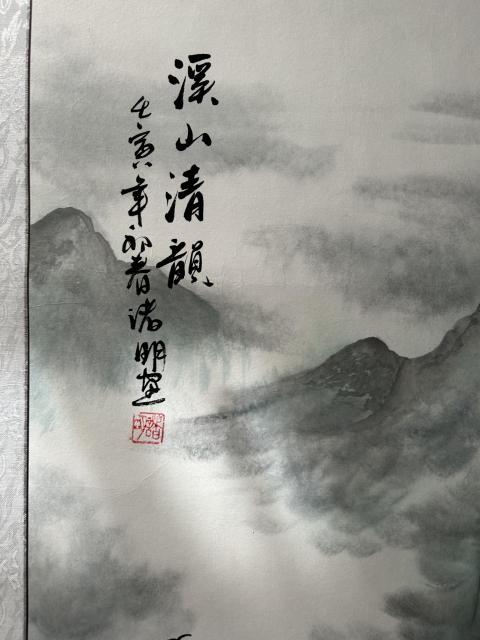 溪山清韻
壬寅年初春諸明畫